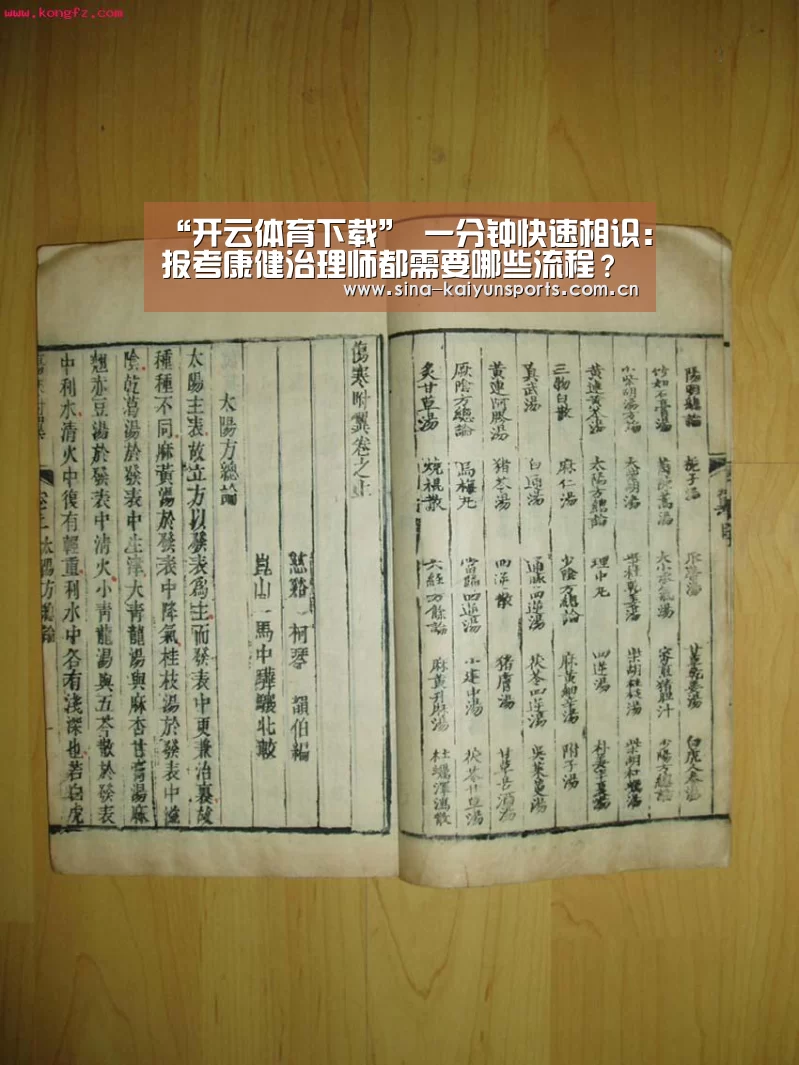 www.kongfz.com
“开云体育下载” 一分钟快速相识：
报考康健治理师都需要哪些流程？
www.sina-kaiyunsports.com.cn
陽明總論 梔子湯 甘草乾姜湯 白虎人參湯
竹如石膏湯 大小承氣湯 蜜煎猪胆汁 少陽方總論
小柴胡湯方論 大柴胡湯 柴桂乾姜湯 柴胡桂枝湯
黃連黃芩湯 太陽方總論 理中丸 四逆湯
三物白散 麻仁湯 少陰方總論 麻黃細辛湯 附子湯
真武湯 白通湯 通脉四逆湯 茯苓四逆湯 吳茱萸湯
黃連阿膠湯 猪苓湯 四逆散 猪膚湯 甘草苦酒湯
厥陰方總論 烏梅丸 當歸四逆湯 小建中湯 茯苓甘草湯
炙甘草湯 燒裩散 六經方餘論 麻黃升麻湯 牡蠣澤瀉散
傷寒附翼卷之上
慈谿 柯琴 韻伯編
崑山 馬中驊驤北較
太陽方總論
太陽主表故立方以發表爲主而發表中更兼治裏故
種種不同麻黃湯於發表中降氣桂枝湯於發表中滋
陰乾葛湯於發表中生津大青龍湯與麻杏甘膏湯麻
翹赤豆湯於發表中清火小青龍湯與五苓散於發表
中利水清火中復有輕重利水中各有淺深也若白虎
傷寒附翼 卷上 太陽方總論